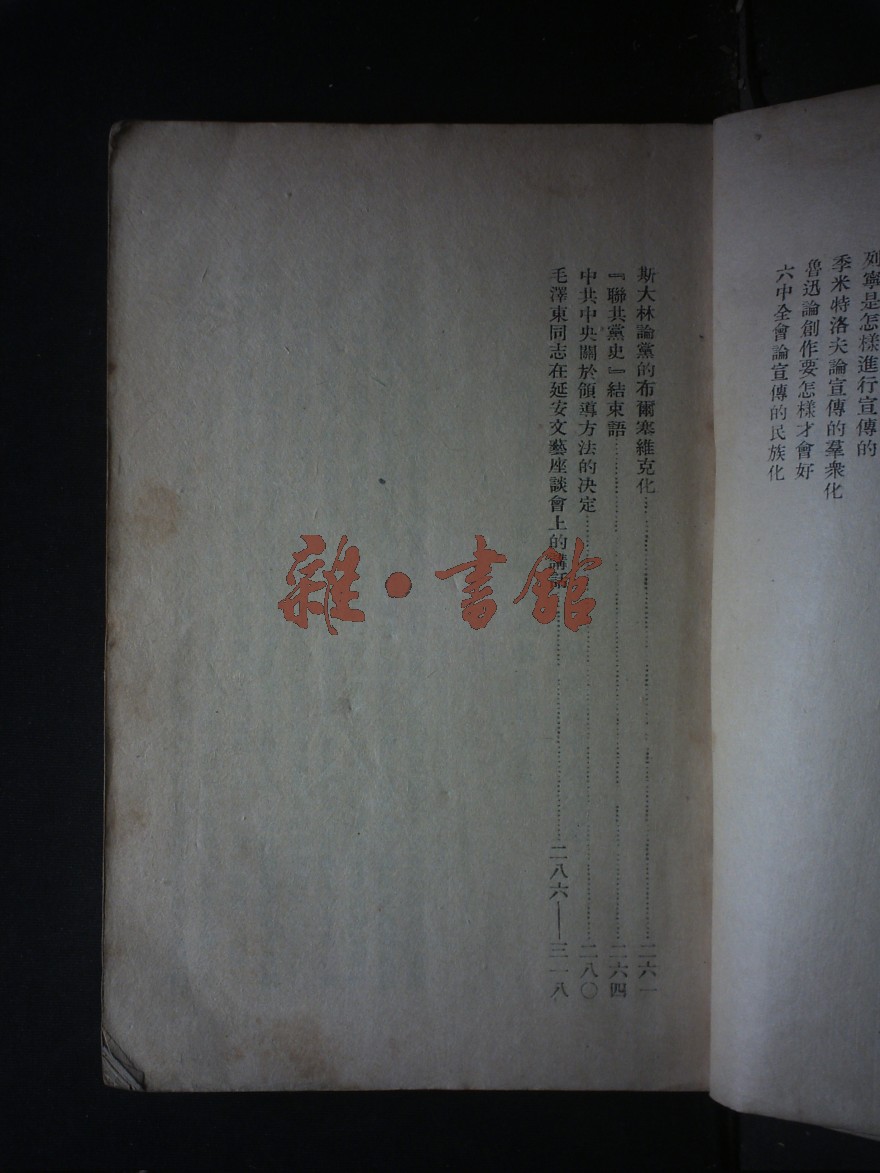 列寧是怎樣進行宣傳的
季米特洛夫論宣傳的羣衆化
魯迅論創作要怎樣才會好
六中全會論宣傳的民族化
斯大林論黨的布爾塞維克化……二六一
『聯共黨史』結束語……二六四
中共中央關於領導方法的决定……二八〇
毛澤東同志在延安文藝座談會上的講話……二八六——三一八
雜·書館